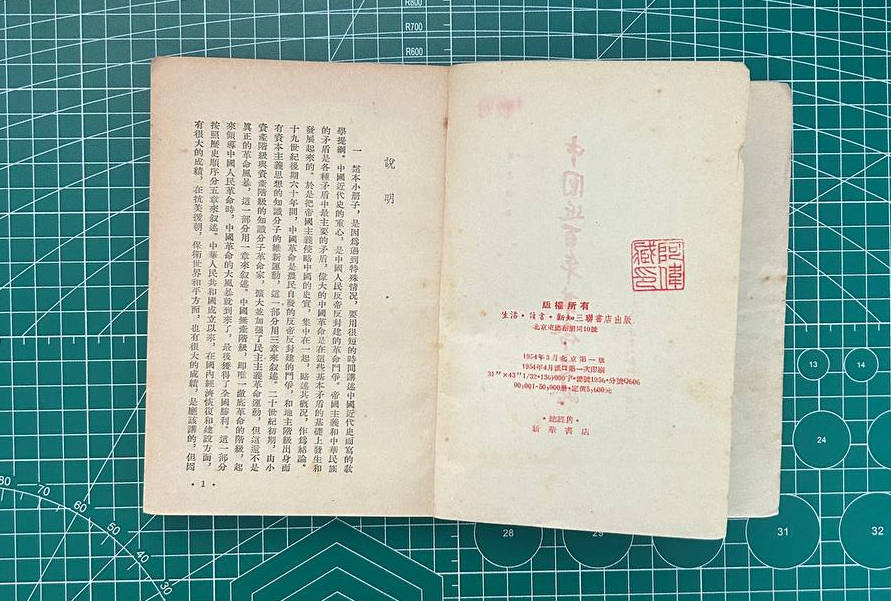 說明
一 這本小册子，是因爲遇到特殊情况，要用很短的時間講述中國近代史而寫的教
學提綱。中國近代史的重心，是中國人民反帝反封建的革命鬥爭。帝國主義和中華民族
的矛盾是各種矛盾中最主要的矛盾，偉大的中國革命是在這些基本矛盾的基礎上發生和
發展起來的。於是把帝國主義侵略中國的史實，集中在一起，略述其概况，作爲緒論。
十九世紀後期六十年間，中國革命是農民自發的反帝反封建的鬥爭，和地主階級出身而
有資本主義思想的知識分子的維新運動，這一部分用三章來叙述。二十世紀初期，由小
資產階級與資產階級的知識分子革命家，擴大並加强了民主主義革命運動，但這還不是
眞正的革命風暴，這一部分用一章來叙述。中國無產階級，即唯一徹底革命的階級，起
來領導中國人民革命時，中國革命的大風暴就到來了，最後獲得了全國勝利。這一部分
按照歷史順序分五章來叙述。中華人民共和國成立以來，在國內經濟恢復和建設方面，
有很大的成績，在抗美援朝，保衛世界和平方面，也有很大的成績，是應該講的，但因
•1•
中國近百年
阿偉
藏印
版權所有
生活·讀書·新知三聯書店出版
北京東總布胡同10號
1954年3月北京第一版
1954年4月漢口第一次印刷
31"×43"1/32·136,000字·
00,001-50,000册·定價5,600元
·總經售·
新華書店
R800
R700
R600
13
14
24
28
29
31
32
70
60
50
40
30
80